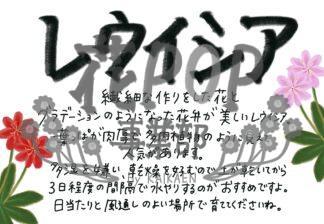 レウイシア
繊細な作りをした花と
グラデーションのようになった花弁が美しいレウイシア
葉っぱが肉厚で多肉植物のように見え
人気があります。
多湿を嫌い、乾燥を好むので土が乾いてから
3日程度の間隔で水やりするのがおすすめですよ。
日当たりと風通しのよい場所で育ててくださいね。
花POP
倶楽部
By KAIMEN